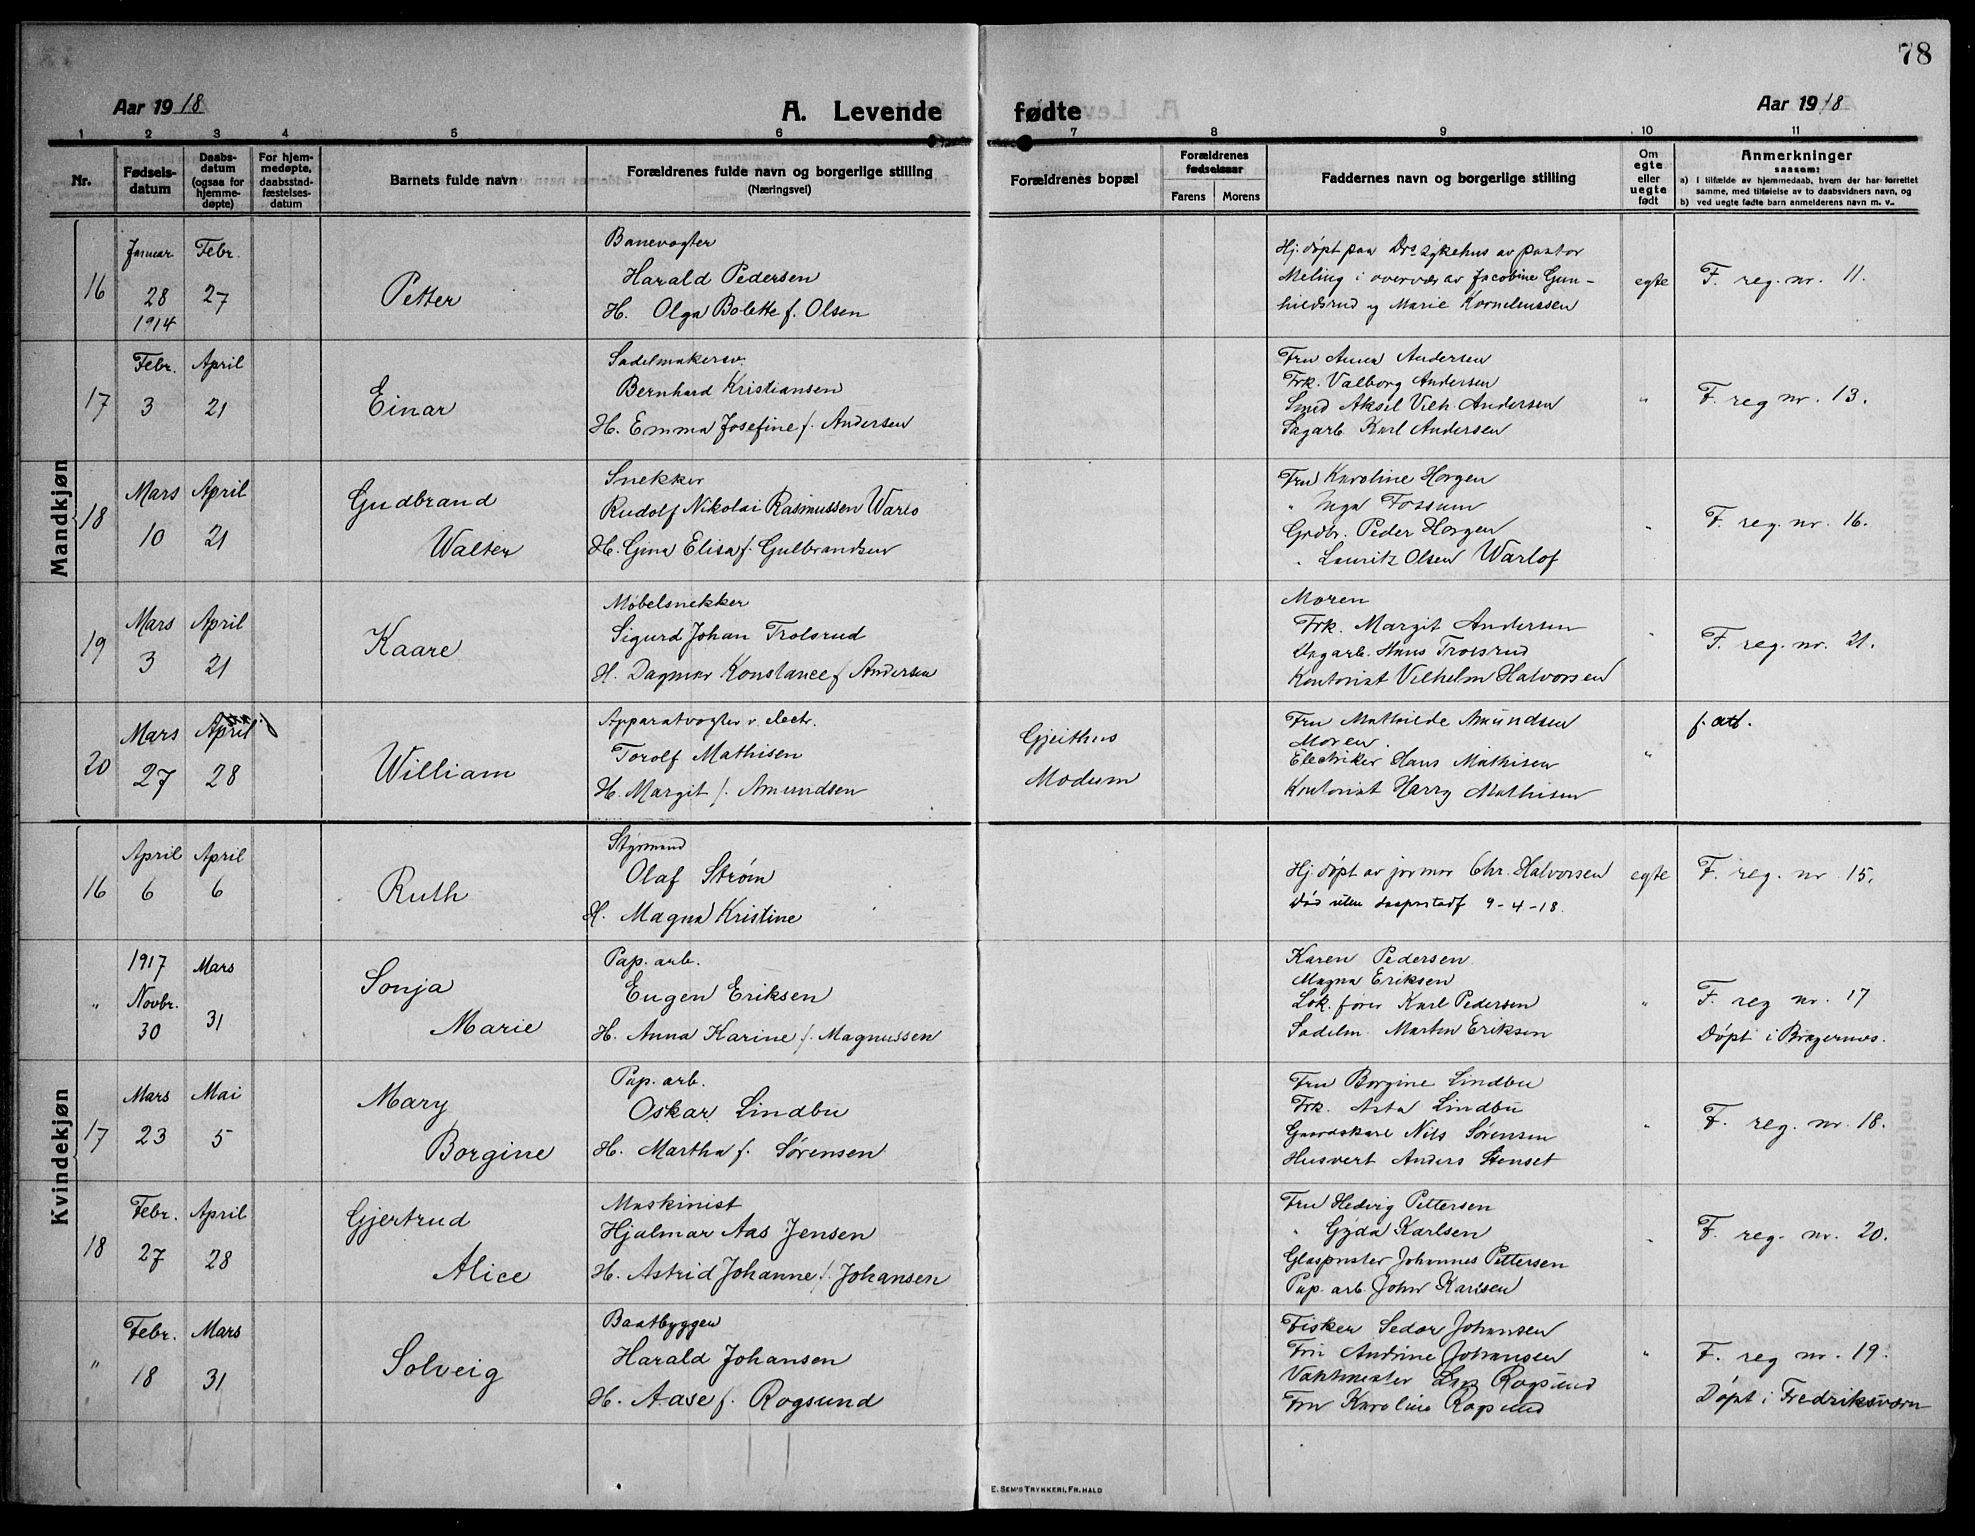 78
Aar 1918
A. Levende fødte
Aar 1918
1 2 3 4 5 6 7 8 9 10 11
Nr.
Fødsels-
datum
Daabs-
datum
(ogsaa for
hjemme-
døpte)
For hjem-
medøpte,
daabsstad-
fæstelses-
datum
Barnets fulde navn
Forældrenes fulde navn og borgerlige stilling
(Næringsvei)
Forældrenes bopæl
Forældrenes
fødselsaar
Farens Morens
Faddernes navn og borgerlige stilling
Om
egte
eller
uegte
født
Anmerkninger
saasom:
a) I tilfælde av hjemmedaab, hvem der har forrettet
samme, med tilføielse av to daabsvidners navn, og
b) ved uegte fødte barn anmelderens navn m. v.
Mandkjøn
16
Januar
28
1914
Febr.
27
Petter
Banevogter
Harald Pedersen
H. Olga Bolette f. Olsen
Hj. døpt paa Drs sykehus av pastor
Meling i overvær av Jacobine Gun-
hildsrud og Marie Korneliussen
egte
F. reg. nr. 11.
17
Febr.
3
April
21
Einar
Sadelmakersv.
Bernhard Kristiansen
H. Emma Josefine f. Andersen
Fru Anna Andersen
Frk. Valborg Andersen
Smed Aksel Vilh. Andersen
Sagarb. Karl Andersen
"
F. reg nr. 13.
18
Mars
10
April
21
Gudbrand
Walter
Snekker
Rudolf Nikolai Rasmussen Warlo
H. Gina Elisa f. Gulbrandsen
Fru Karoline Horgen
" Inga Fossum
Grdbr. Peder Horgen
" Lauritz Olsen Warlof
"
F. reg. nr. 16.
19
Mars
3
April
21
Kaare
Møbelsnekker
Sigurd Johan Trolsrud
H. Dagmar Konstance f. Andersen
Moren
Frk. Margit Andersen
Dagarb. Hans Trolsrud
Kontorist Vilhelm Halvorsen
"
F. reg. nr. 21.
20
Mars
27
April
28
William
Apparatvogter v. electr.
Torolf Mathisen
H. Margit f. Amundsen
Gjeithus
Modum
Fru Mathilde Amundsen
Moren.
Electriker Hans Mathisen
Kontorist Harry Mathisen
"
f. att.
Kvindekjøn
16
April
6
April
6
Ruth
Styrmand
Olaf Strøm
H. Magna Kristine
Hj. døpt av jormor Chr. Halvorsen
Død uten daapsstadf 9-4-18.
egte
F. reg. nr 15.
"
1917
Novbr.
30
Mars
31
Sonja
Marie
Pap. arb.
Eugen Eriksen
H. Anna Karine f. Magnussen
Karen Pedersen
Magna Eriksen
Lok. fører Karl Pedersen
Sadelm. Marten Eriksen
"
F. reg nr. 17
Døpt i Bragernes.
17
Mars
23
Mai
5
Mary
Borgine
Pap. arb.
Oskar Lindbu
H. Martha f. Sørensen
Fru Borgine Lindbu
Frk. Asta Lindbu
Gaardskarl Nils Sørensen
Husvert Anders Stenset
"
F. reg. nr. 18.
18
Febr.
27
April
28
Gjertrud
Alice
Maskinist
Hjalmar Aas Jensen
H. Astrid Johanne f. Johansen
Fru Hedvig Pettersen
" Gyda Karlsen
Glaspuster Johannes Pettersen
Pap. arb. John Karlsen
"
F. reg. nr. 20.
"
Febr.
18
Mars
31
Solveig
Baatbygger
Harald Johansen
H. Aase f. Rogsund
Fisker Sedor Johansen
Fru Andrine Johansen
Vaktmester Lars Rogsund
Fru Karoline Rogsund
"
F. reg nr. 19.
Døpt i Fredriksværn
E. SEM'S TRYKKERI, FR.HALD